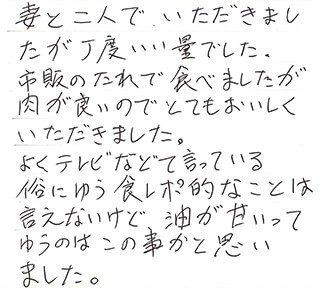 妻と二人で、いただきまし
たが丁度いい量でした、
市販のたれで食べましたが
肉が良いのでとてもおいしく
いただきました。
よくテレビなどで言っている
俗にゆう食レポ的なことは
言えないけど、油が甘いって
ゆうのはこの事かと思い
ました。